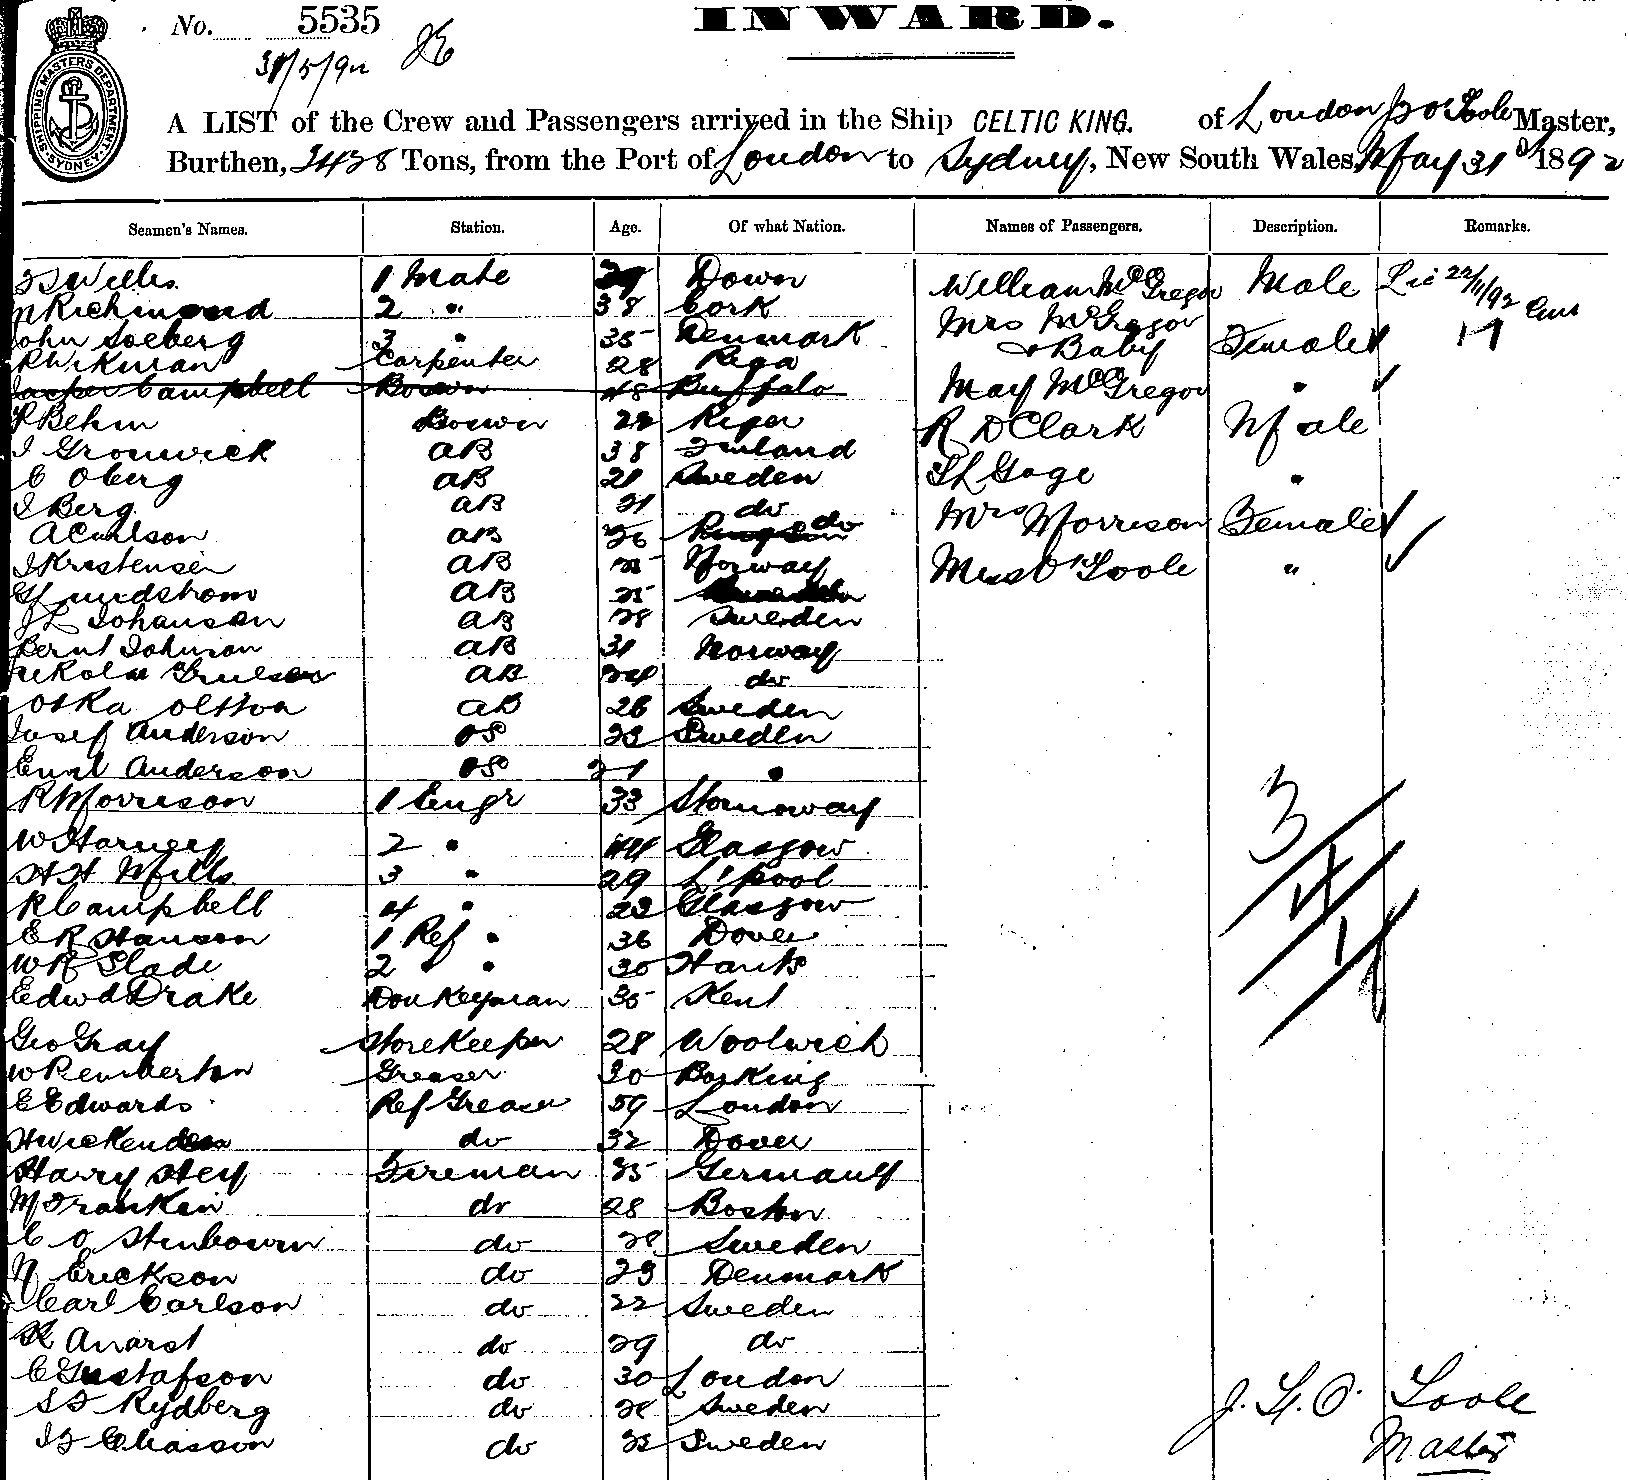 No. 5535
INWARD.
31/5/92
SYDNEY SHIPPING MASTERS DEPARTMENT
A LIST of the Crew and Passengers arrived in the Ship CELTIC KING. of London Master,
Burthen, 2438 Tons, from the Port of London to Sydney, New South Wales, May 31st 1892
Seamen's Names. Station. Age. Of what Nation. Names of Passengers. Description. Remarks.
Willis 1 Mate Down William McGregor Male
Richmond 2 " 38 Cork Mrs McGregor
John Soeberg 3 " 35 Denmark & Baby Female
Carpenter 28 Riga
Campbell Bosun 48 Buffalo May McGregor "
Behm Bosun Riga R D Clark Male
AB 38 Finland
C Oberg AB 21 Sweden Gage "
I Berg AB 21 do Mrs Morrison Female
A Carlson AB 26 do
Kristensen AB Norway Miss O'Toole "
AB 25
Johansen AB 28 Sweden
Bernt Johnson AB 31 Norway
AB 24 do
Oska AB 26 Sweden
Josef Anderson OS 23 Sweden
Anderson OS 21 "
R Morrison 1 Engr 33 Stornoway
W Harvey 2 " 44 Glasgow
H H Mills 3 " 29 L'pool
R Campbell 4 " 23 Glasgow
E R Hanson 1 Ref " 36 Dover
W R Slade 2 " " 30 Hants
Edwd Drake Donkeyman 35 Kent
Geo Gray Storekeeper 28 Woolwich
W Pemberton Greaser 30 Barking
E Edwards Ref Greaser 59 London
H Wickenden do 32 Dover
Harry Hey Fireman 35 Germany
M Frankin do 28 Boston
C O Stenbourn do 28 Sweden
N Erickson do 23 Denmark
Carl Carlson do 22 Sweden
do 29 do
C Gustafson do 30 London
Rydberg do 28 Sweden
do Sweden
J. H. O'Toole
Master